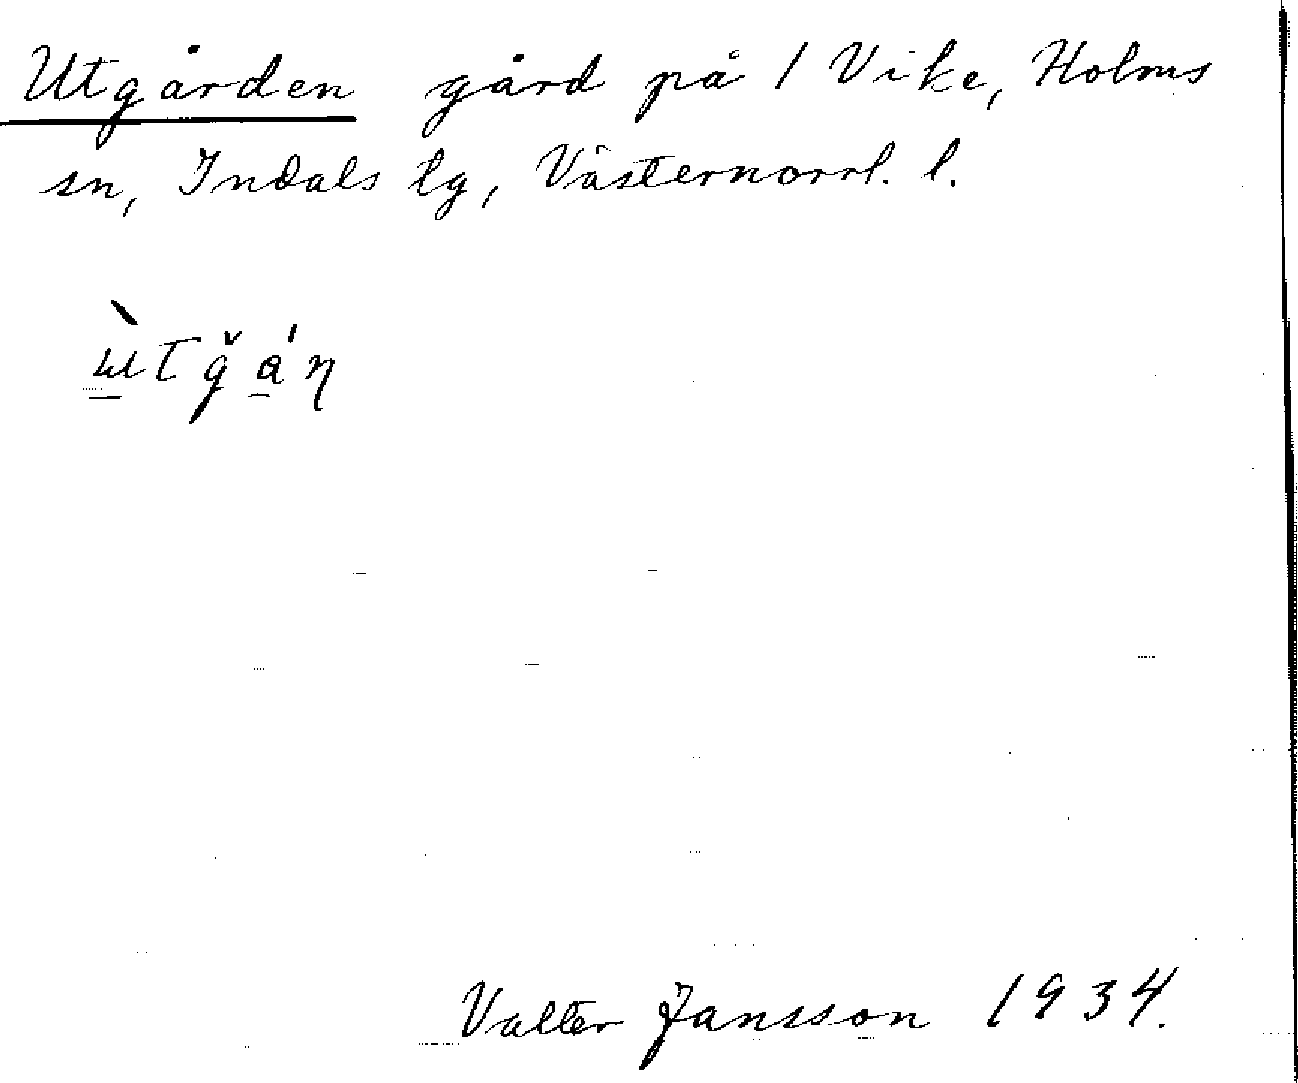 Utgården gård på 1 Vike, Holms
sn, Indals tg, Västernorrl. l.
Valter Jansson 1934.